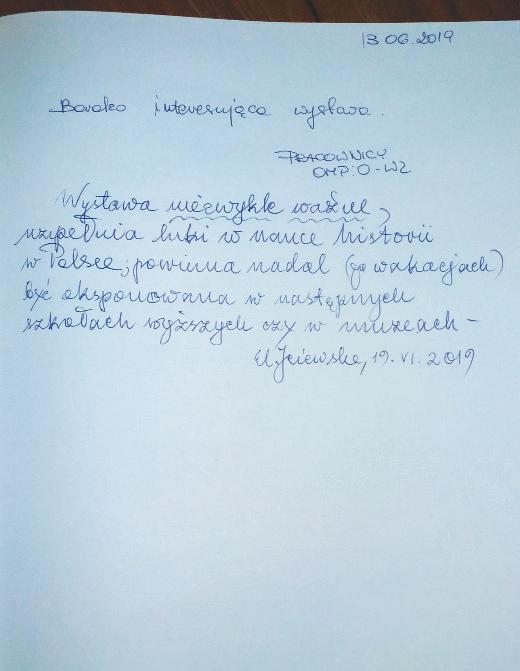 13 06.2019
Bardzo interesująca wystawa.
PRACOWNICY
OMPiO-WZ
Wystawa niezwykle ważna,
uzupełnia luki w nauce historii
w Polsce; powinna nadal (po wakacjach)
być eksponowana w następnych
szkołach wyższych czy w muzeach –
19. VI. 2019